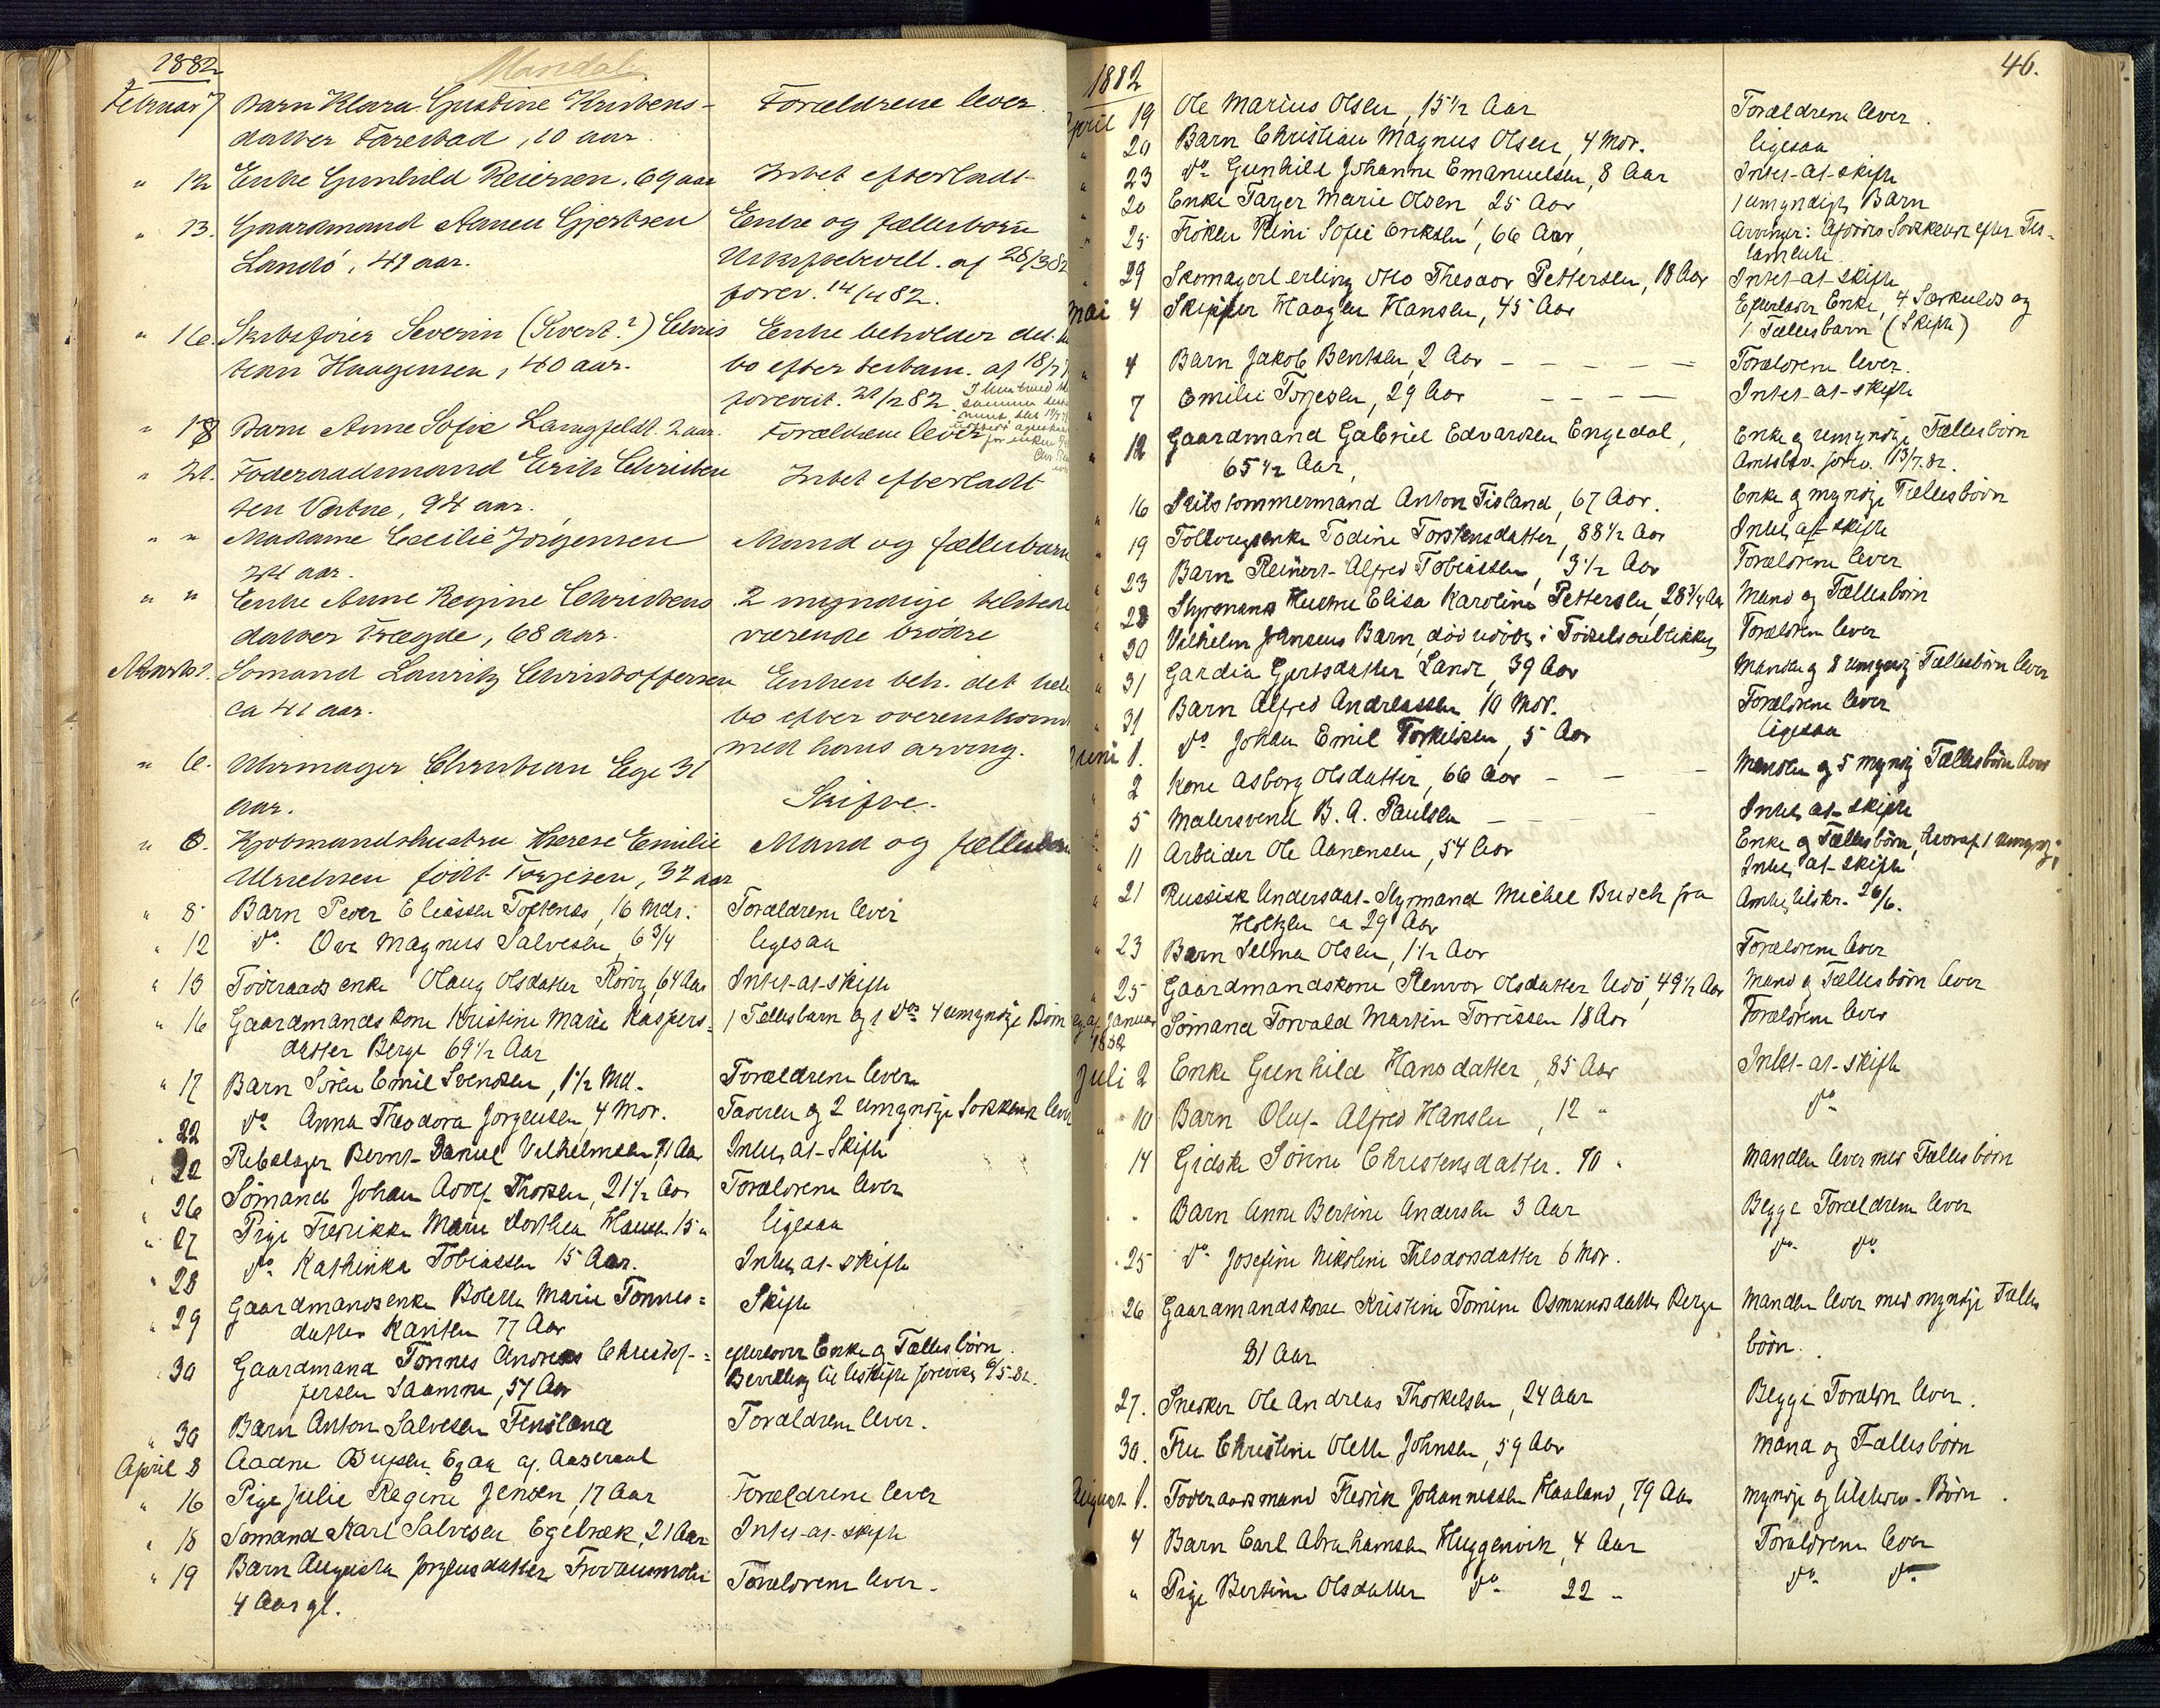 1882
Mandal
Februar 7 Barn Klara Gustine Kristens- Forældrene lever
datter Farestad, 10 aar.
" 12 Enke Gunhild Reiersen. 69 aar Intet efterladt
" 13. Gaardmand Aanen Gjertsen Enke og fællesbørn
Landö, 49 aar. Uskiftebevill. af 28/3 82
forev. 14/4 82.
" 16. Skibsfører Severin (Sivert?) Chris Enke beholder det
tian Haagensen, 40 aar. bo efter testam. af
forevist. 21/2 82
" 18 Barn Anne Sofie Langfeldt. 2 aar. Forældrene lever
" 21. Föderaadsmand Erik Christen Intet efterladt
sen Valnæ, 94 aar.
" " Madame Cecilie Jörgensen Mand og fællesbarn
24 aar.
" " Enke Anne Regine Christens 2 myndige tilstede
datter Trægde, 68 aar. værende brödre
Marts 1. Sömand Lauritz Christoffersen Enken beh. det hele
ca 41 aar. bo efter overenskomst
med hans arving.
" 6. Uhrmager Christian Ege 31
aar. Skifte.
" 8. Kjøbmandshustru Therese Emilie Mand og fællesbørn
Ullriksen född Torjesen, 32 aar
" 8 Barn Peder Eliassen Toftenes, 16 Mdr. Forældrene lever
" 12 do. Ove Magnus Salvesen, 6 3/4 ligesaa
" 13 Föderaads enke Olaug Olsdatter Rövig, 64 Aar Intet at skifte
" 16 Gaardmands kone Kristine Marie Kaspers= 1 Fællesbarn og 1 do 4 umyndige Børn
datter Berge 69 1/2 Aar
" 17 Barn Sören Emil Svendsen, 1 1/2 Md. Forældrene lever
" 22 do Anna Theodora Jørgensen, 4 Mdr. Faderen og 2 umyndige Søskende lever
" 22 Rebslager Bernt Daniel Vilhelmsen, 71 Aar Intet at Skifte
" 26 Sömand Johan Adolf Thorsen, 21 1/2 Aar Forældrene lever
" 27 Pige Fredrikke Marie Dorthea Hansen 15 " ligesaa
" 28 do. Kathinka Tobiassen 15 Aar. Intet at skifte
" 29 Gaardmandsenke Bolette Marie Tønnes= Skifte
datter 77 Aar
" 30 Gaardmand Tønnes Andreas Christof-= efterlader Enke og Fællesbørn.
fersen Saanum, 57 Aar Bevilling til uskifte forevist 6/5-82.
" 30 Barn Anton Salvesen Fensland Forældrene lever.
April 8 Aadne af Aaseral
" 16 Pige Julie Regine Jensen, 17 Aar Forældrene lever
" 18 Sømand Karl Salvesen Egebæk, 21 Aar Intet at skifte
" 19 Barn Augusta Jørgensdatter Forældrene lever.
4 Aar gl.
46.
1882
April 19 Ole Marius Olsen, 15 1/2 Aar Forældrene lever.
" 20 Barn Christian Magnus Olsen, 4 Mdr. ligesaa
" 23 do Gunhild Johanne Emanuelsen, 8 Aar Intet at skifte
" 20 Enke Tarjer Marie Olsen, 25 Aar 1 umyndigt Barn
" 25 Frøken Rini Sofie Eriksen, 66 Aar, Arvinger: Afdødes Søskende efter Tes-
tamente.
" 29 Skomagerlærling Otto Theodor Pettersen, 18 Aar Intet at skifte
Mai 4 Skipper Haagen Hansen, 45 Aar Efterlader Enke, 4 Særkuld og
1 Fællesbarn (Skifte)
" 4 Barn Jakob Bentsen, 2 Aar - - - - Forældrene lever.
" 7 Emilie Torjesen, 29 Aar - - - - Intet at skifte
" 12 Gaardmand Gabriel Edvardsen Engedal, Enke og umyndige Fællesbörn
65 1/2 Aar, Amtsbev. forev. 13/7. 82.
" 16 Skibstømmermand Anton Fisland, 67 Aar. Enke og myndige Fællesbörn
" 19 Todine Torstensdatter, 88 1/2 Aar Intet at skifte
" 23 Barn Reinert Alfred Tobiassen, 3 1/2 Aar Forældrene lever
" 28 Styrmands Hustru Elisa Karoline Pettersen, 28 3/4 Aar Mand og Fællesbörn
" 30 Vilhelm Jansens Barn, død udøbt i Fødselsøieblikket Forældrene lever
" 31 Gardia Gjertsdatter Lande, 39 Aar Manden og 8 umyndige Fællesbörn lever
" 31 Barn Alfred Andreassen 10 Mdr. Forældrene lever
Juni 1. do Johan Emil Torkildsen, 5 Aar ligesaa
" 2 Kone Asborg Olsdatter, 66 Aar - - - Manden og 5 myndige Fællesbörn lever
" 5 Malersvend B. A. Paulsen - - Intet at skifte
" 11 Arbeider Ole Aanensen, 54 Aar Enke og Fællesbörn, hvoraf 1 umyndig;
Intet at skifte
" 21 Russisk Undersaat Styrmand Michel Busch fra Amtet tilskr. 26/6.
ca 29 Aar
" 23 Barn Selma Olsen, 1 1/2 Aar Forældrene lever
" 25 Gaardmandskone Renvor Olsdatter Udö, 49 1/2 Aar Mand og Fællesbörn lever
Januar Sömand Torvald Martin Torrissen 18 Aar Forældrene lever
1882
Juli 2 Enke Gunhild Hansdatter, 85 Aar Intet at skifte
" 10 Barn Oluf Alfred Hansen, 12 " do
" 14 Gidske Sørine Christensdatter. 70 " Manden lever med Fællesbörn
" " Barn Anne Bertine Andersen 3 Aar Begge Forældrene lever
" 25 do Josefine Nikoline Theodorsdatter 6 Mdr. do do
" 26 Gaardmandskone Kristine Tomine Osmundsdatter Berge Manden lever med myndige Fælles
81 Aar börn.
27. Snedker Ole Andreas Thorkelsen, 24 Aar Begge Forældre lever.
30. Fru Christine Olette Johnsen, 59 Aar Mand og Fællesbörn
August 1. Foderaadsmand Fredrik Johannessen Haaland, 79 Aar myndige og tilstedev. Börn.
4 Barn Carl Abrahamsen Huggenvik, 4 Aar Forældrene lever
" Pige Bertine Olsdatter do 22 " do do